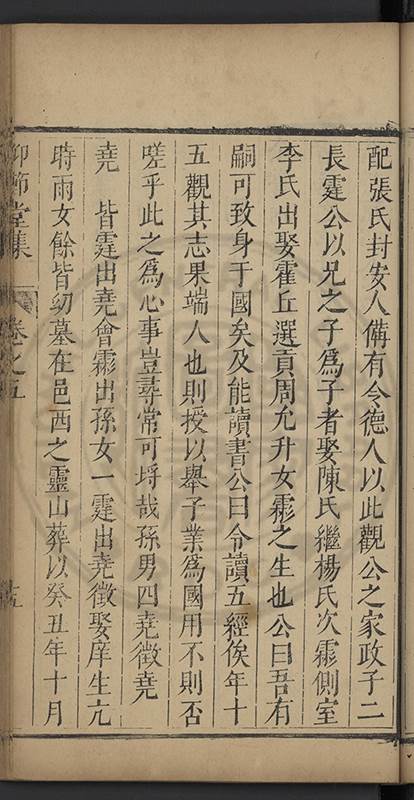 配張氏封安人備有令德人以此觀公之家政子二
長霆公以兄之子為子者娶陳氏繼楊氏次霦側室
李氏出娶霍丘選貢周允升女霦之生也公曰吾有
嗣可致身于國矣及能讀書公曰令讀五經俟年十
五觀其志果端人也則授以舉子業為國用不則否
嗟乎此之為心事豈尋常可埒哉孫男四堯徵堯
堯 皆霆出堯會霦出孫女一霆出堯徵娶庠生亢
時雨女餘皆幼墓在邑西之靈山葬以癸丑年十月
仰節堂集 卷之五